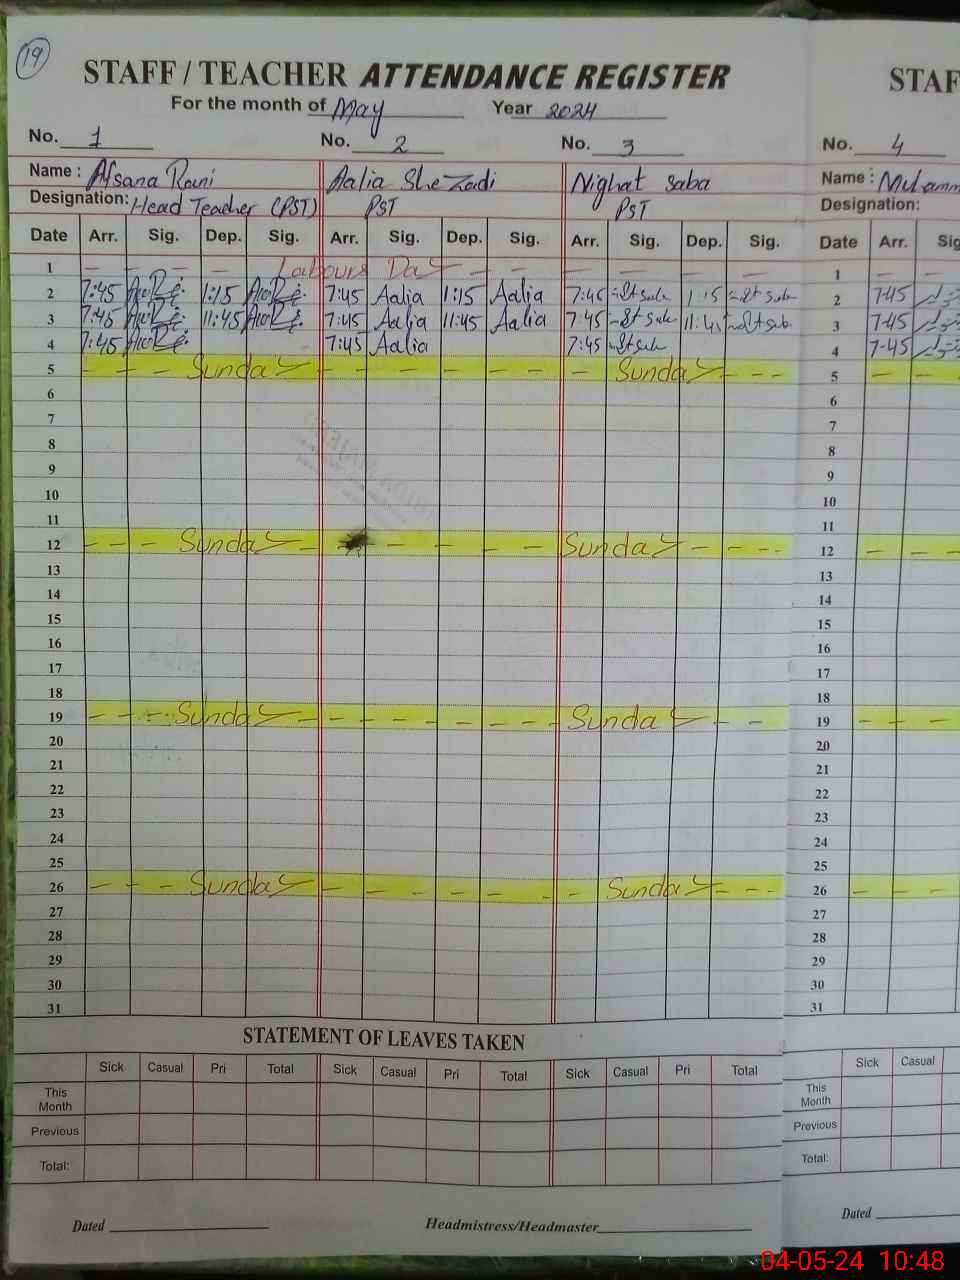 19
STAFF / TEACHER ATTENDANCE REGISTER
For the month of May Year 2024
No. 1 No. 2 No. 3
Name : Afsana Rani Aalia SheZadi Nighat Saba
Designation: Head Teacher (PST) PST PST
Date Arr. Sig. Dep. Sig. Arr. Sig. Dep. Sig. Arr. Sig. Dep. Sig.
1 Labours Day
2 7:45 1:15 7:45 Aalia 1:15 Aalia 7:45 1:15
3 7:45 11:45 7:45 Aalia 11:45 Aalia 7:45 11:45
4 7:45 7:45 Aalia 7:45
5 - - - Sunday - - - - - - - Sunday - - -
6
7
8
9
10
11
12 - - - Sunday - - - - - - Sunday - - - -
13
14
15
16
17
18
19 - - - Sunday - - - - - - - Sunday - - -
20
21
22
23
24
25
26 - - - Sunday - - - - - - - Sunday - - -
27
28
29
30
31
STATEMENT OF LEAVES TAKEN
Sick Casual Pri Total Sick Casual Pri Total Sick Casual Pri Total
This
Month
Previous
Total:
Dated Headmistress/Headmaster
STAF
No. 4
Name : Muhamm
Designation:
Date Arr. Sig
1
2 7-45
3 7-45
4 7-45
5 - -
6
7
8
9
10
11
12 - -
13
14
15
16
17
18
19 - - -
20
21
22
23
24
25
26 - - -
27
28
29
30
31
Sick Casual
This
Month
Previous
Total:
Dated
04-05-24 10:48